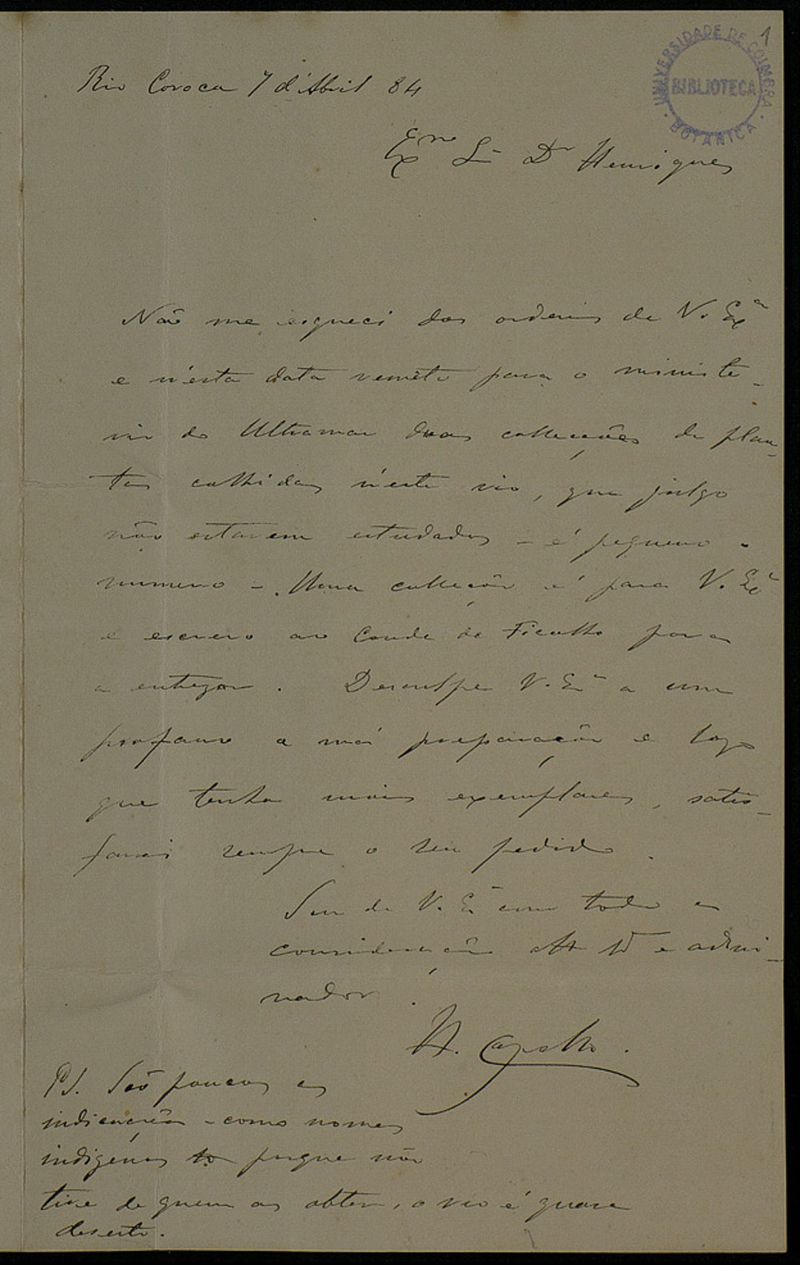 1
UNIVERSIDADE DE COIMBRA
BIBLIOTECA
BOTANICA
Rio Coroca 7 d'Abril 84
Exmo Sr Dr Henriques
Não me esqueci das ordens de V. Exa
e n'esta data remeto para o ministe-
rio do Ultramar duas collecções de plan-
tas colhidas n'este rio, que julgo
não estarem estudadas - é pequeno o
numero -. Uma collecção é para V. Exa
e escrevo ao Conde de Ficalho para
a entregar. Desculpe V. Exa a um
profano a má preparação e logo
que tenha mais exemplares, satis-
farei sempre o seu pedido.
Sou de V. Exa com toda a
consideração Atto Vor e admi-
rador.
H. Capello.
PS. São poucas as
indicações - como nomes
indigenas porque não
tive de quem os obter, o rio é quasi
deserto.